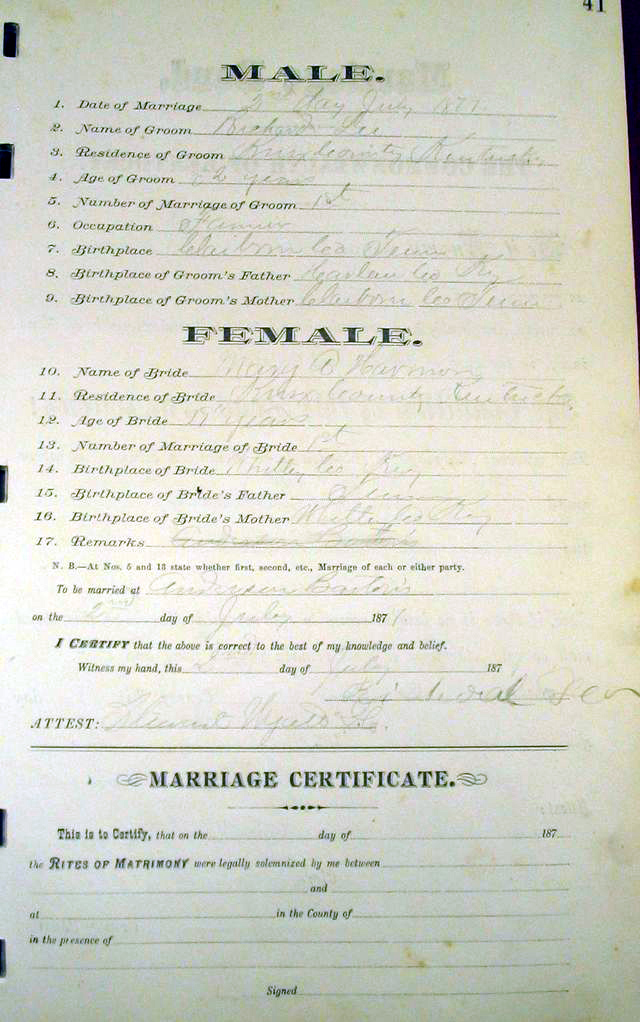 41
MALE.
1. Date of Marriage 2nd day July 1877.
2. Name of Groom Richard Lee
3. Residence of Groom Knox County Kentucky
4. Age of Groom 22 years
5. Number of Marriage of Groom 1st
6. Occupation Farmer
7. Birthplace Claiborn Co Tenn
8. Birthplace of Groom's Father Harlan Co Ky
9. Birthplace of Groom's Mother Claiborn Co Tenn
FEMALE.
10. Name of Bride Mary A Harmon
11. Residence of Bride Knox County Kentucky
12. Age of Bride 19 years
13. Number of Marriage of Bride 1st
14. Birthplace of Bride Whitley Co Ky
15. Birthplace of Bride's Father Tenn
16. Birthplace of Bride's Mother Whitley Co Ky
17. Remarks Anderson
N. B.—At Nos. 5 and 13 state whether first, second, etc., Marriage of each or either party.
To be married at Anderson
on the 2nd day of July 1877
I CERTIFY that the above is correct to the best of my knowledge and belief.
Witness my hand, this 2nd day of July 187
Lee
ATTEST:
MARRIAGE CERTIFICATE.
This is to Certify, that on the day of 187
the RITES OF MATRIMONY were legally solemnized by me between
and
at in the County of
in the presence of
Signed